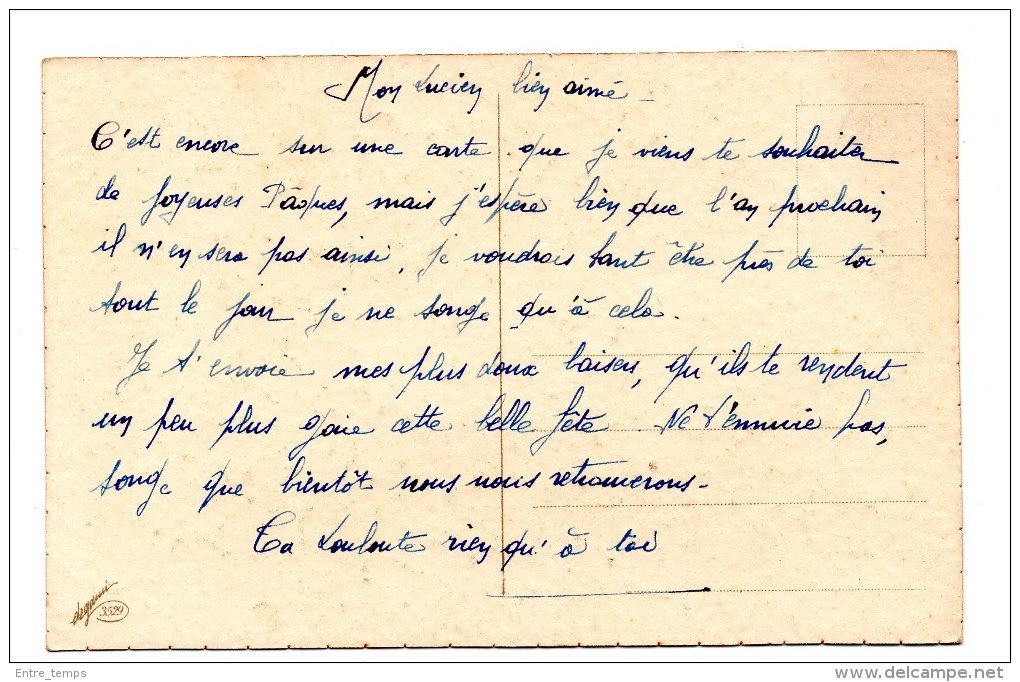 Mon Lucien bien aimé -
C'est encore sur une carte que je viens te souhaiter
de Joyeuses Pâques, mais j'espère bien que l'an prochain
il n'en sera pas ainsi, je voudrais tant être près de toi
tout le jour je ne songe qu'à cela.
Je t'envoie mes plus doux baisers, qu'ils te rendent
un peu plus gaie cette belle fête. Ne t'ennuie pas,
songe que bientôt nous nous retrouverons -
Ta Louloute rien qu'à toi
3529
Entre_temps
www.delcampe.net